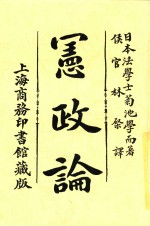 日本法學士菊池學而著
侯官 林棨 譯
憲政論
上海商務印書館藏版